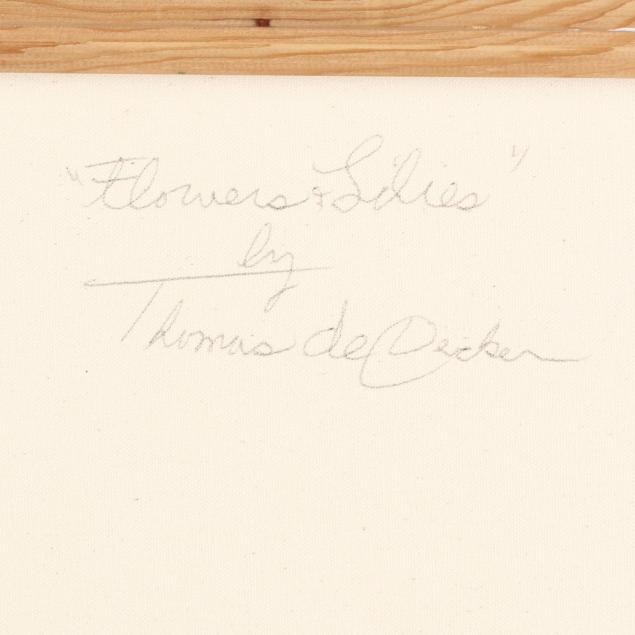 "Flowers + Lilies"
by
Thomas de Decker